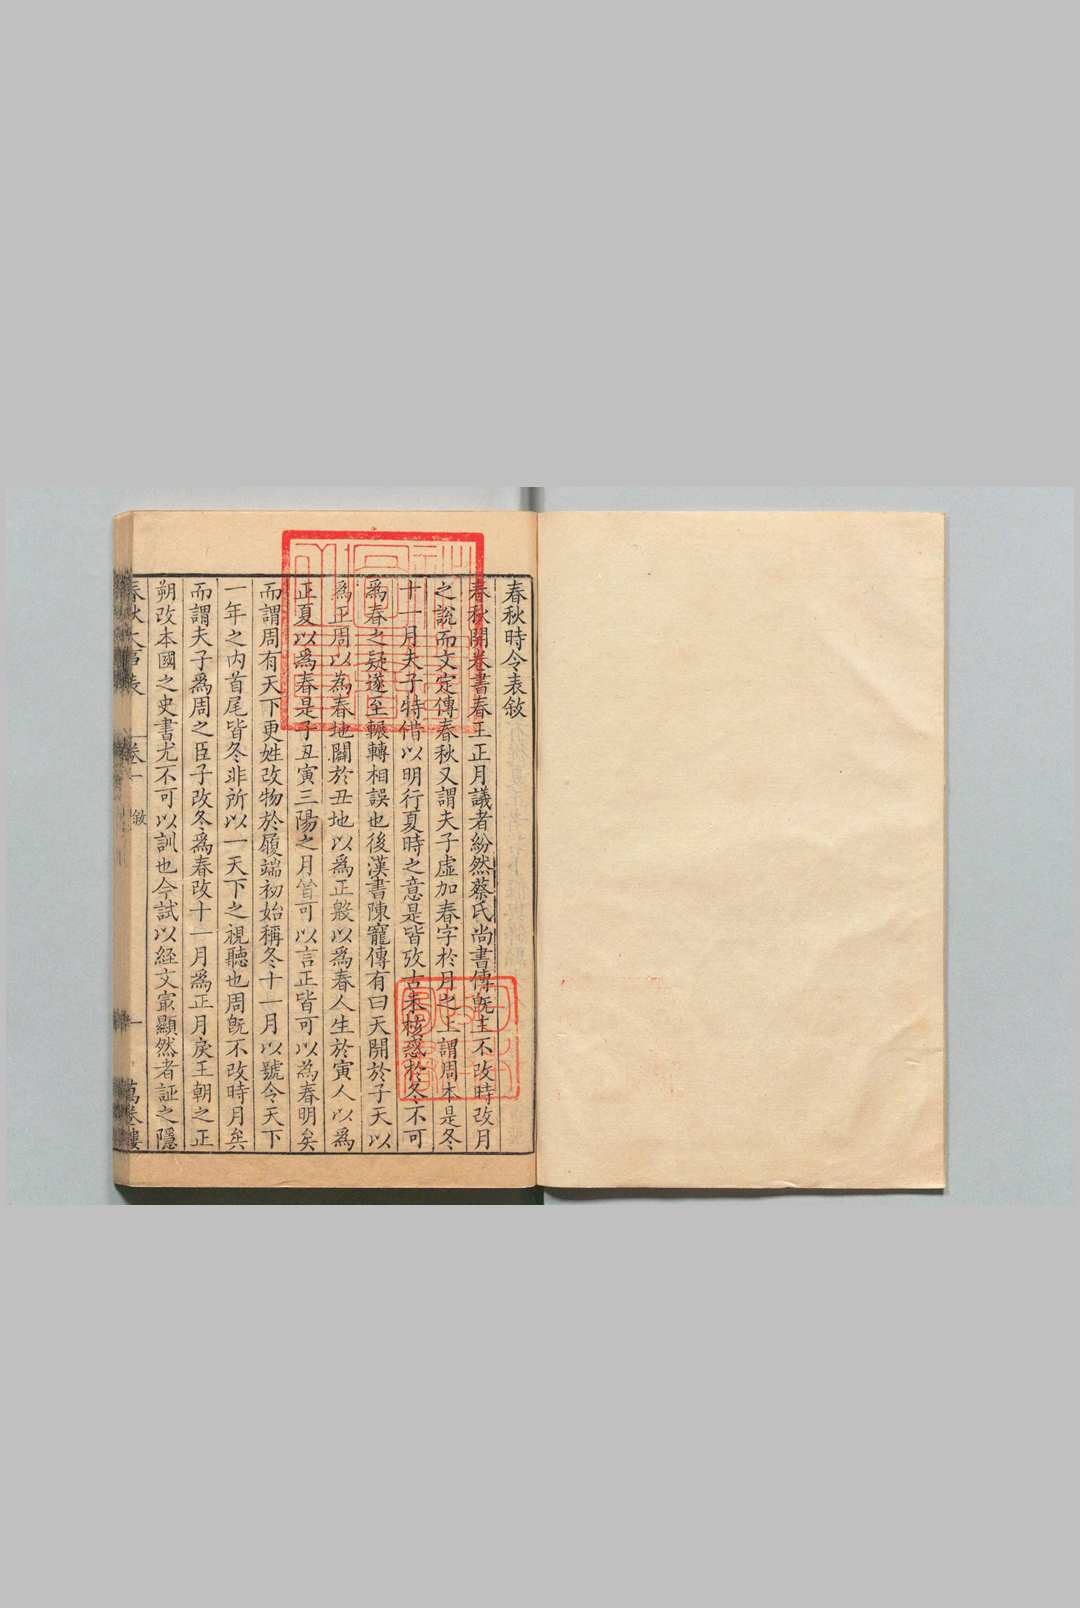 春秋時令表敘
春秋開卷書春王正月議者紛然蔡氏尚書傳旣主不改時改月
之說而文定傳春秋又謂夫子虛加春字於月之上謂周本是冬
十一月夫子特借以明行夏時之意是皆攷古未核惑於冬不可
爲春之疑遂至輾轉相誤也後漢書陳寵傳有曰天開於子天以
爲正周以為春地闢於丑地以爲正殷以爲春人生於寅人以爲
正夏以爲春是子丑寅三陽之月皆可以言正皆可以為春明矣
而謂周有天下更姓改物於履端初始稱冬十一月以號令天下
一年之內首尾皆冬非所以一天下之視聽也周旣不改時月矣
而謂夫子爲周之臣子改冬爲春改十一月爲正月戾王朝之正
朔改本國之史書尤不可以訓也今試以経文㝡顯然者証之隱
春秋大事表 卷一 敘 一 萬卷樓